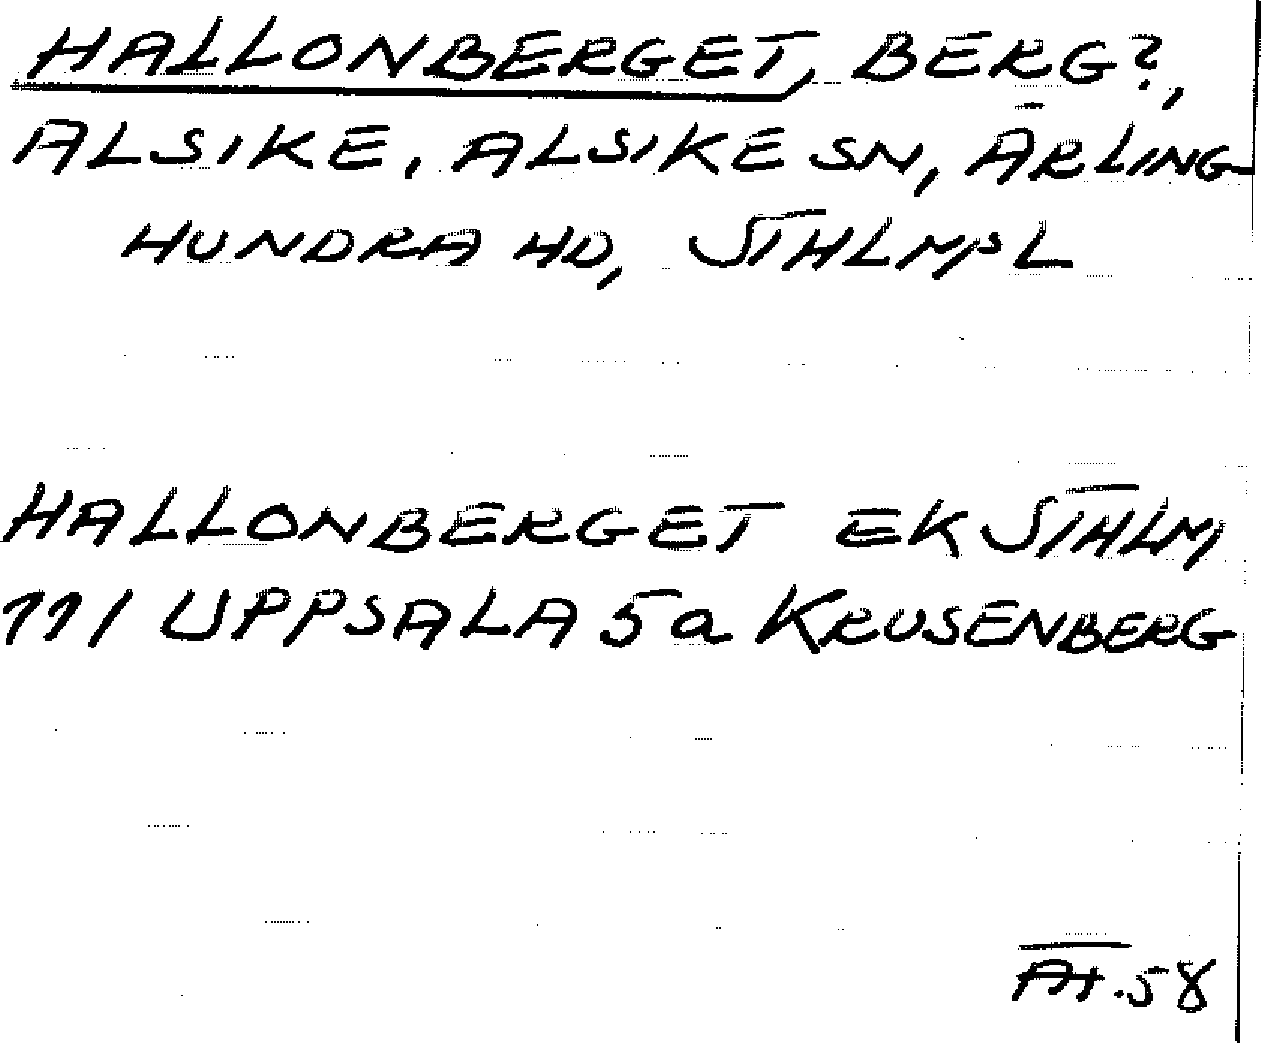 HALLONBERGET, BERG?,
ALSIKE, ALSIKE SN, ÄRLING-
HUNDRA HD, STHLMS L
HALLONBERGET EK STHLM
111 UPPSALA 5a KRUSENBERG